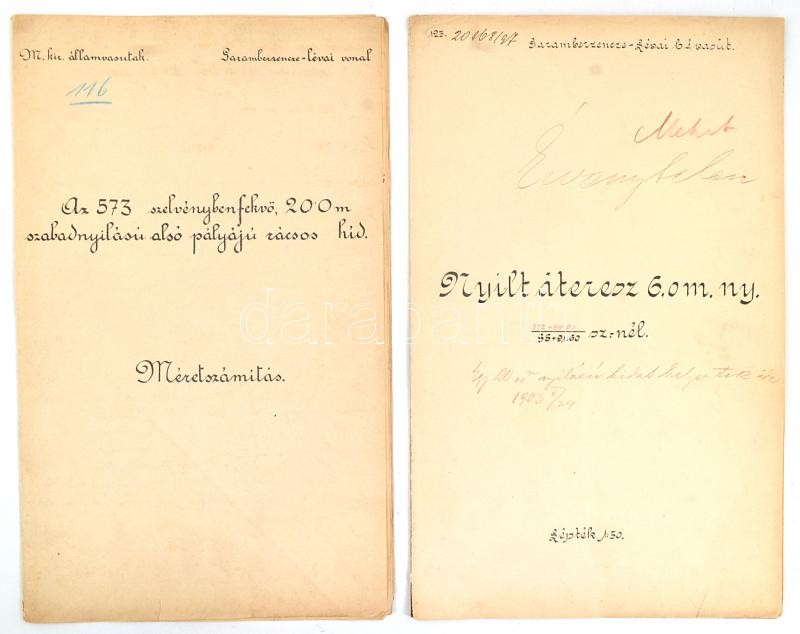 M. kir. államvasutak.
Garamberzencze-lévai vonal
116
Az 573 szelvénybenfekvő, 20·0 m
szabadnyilású alsó pályájú rácsos híd.
Méretszámítás.
123.
20868/97
Garamberzencze-Lévai h.é.vasút.
Érvénytelen
Nyílt áteresz 6.0m. ny.
sz-nél.
Egy 20 m nyilású hidat helyeztek
1903
Lépték 1:50.
darabanth